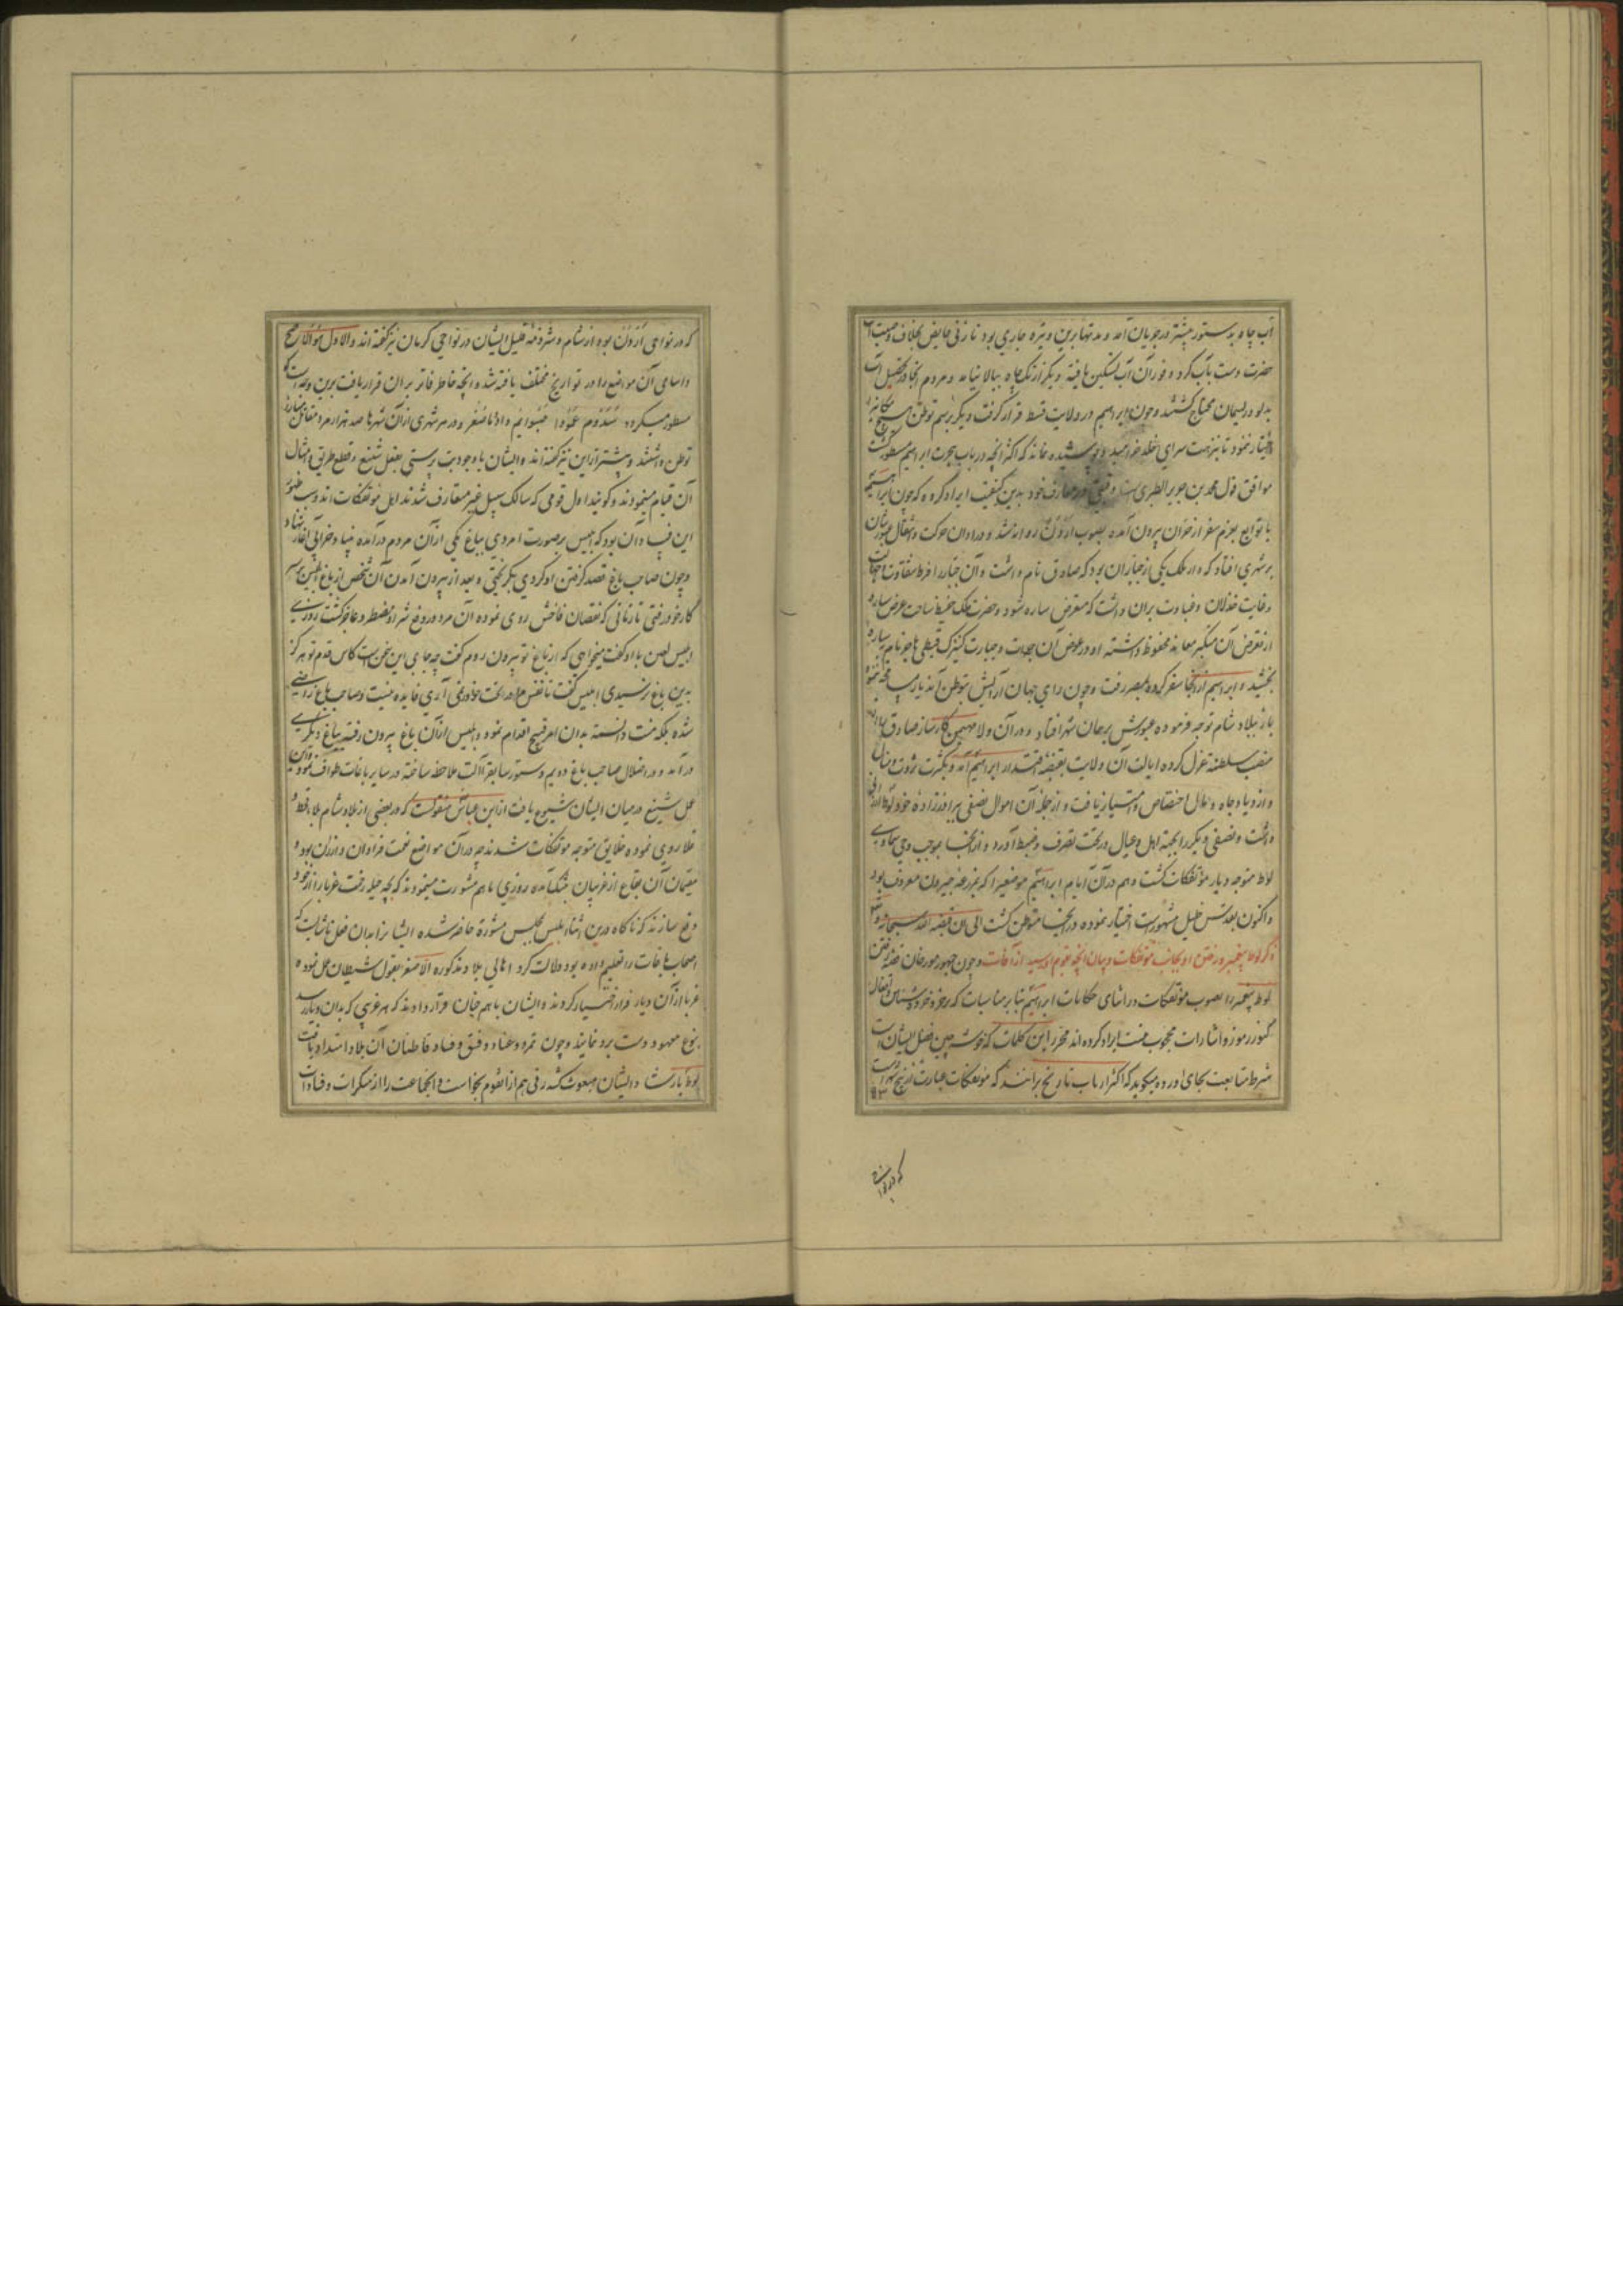 آب چاه بدستور پیشتر در جریان آمد و مدتها برین وتیره جاری بود تا زنی حایض بخلاف وصیت آن
حضرت دست بآب کرد و فوران آب تسکین یافته دیگر از تک چاه ببالا نیامد و مردم آنجا در تحصیل آب
بدلو و ریسمان محتاج گشتند و چون ابراهیم در ولایت قسط قرار گرفت دیگر برسم توطن هیچ مکانی
اختیار ننمود تا بنزهت سرای خلد خرامید و پوشیده نماند که اکثر آنچه در باب هجرت ابراهیم مسطور گشت
موافق قول محمد بن جریر الطبری است و در معارف خود بدین کیفیت ایراد کرده که چون ابراهیم
با توابع بعزم سفر از حران بیرون آمده بصوب اردن روانه شد و در اوان حرکت و انتقال عبورشان
بر شهری افتاد که دار ملک یکی از جباران بود که صادق نام داشت و آن جبار را فرط شقاوت
و غایت خذلان و غباوت بران داشت که متعرض ساره شود و حضرت ملک حفیظ ساحت عرض ساره
از تعرض آن متکبر معاند محفوظ داشته او در عوض آن جرأت و جسارت کنیزک قبطی هاجر نام بساره
بخشید و ابراهیم از آنجا سفر کرده بمصر رفت و چون رای جهان آرایش توطن آن دیار
باز ببلاد شام توجه فرموده عبورش برهمان شهر افتاد و در آن ولا مهیمن کارساز صادق را از
منصب سلطنت عزل کرده ایالت آن ولایت بقبضه اقتدار ابراهیم آمد و بکثرت ثروت و منال
و ازدیاد جاه و مال اختصاص و امتیاز یافت و از جمله آن اموال نصفی ببرادرزاده خود لوط
داشت و نصفی دیگر را بجهة اهل و عیال در تحت تصرف و ضبط آورد و از آنجا بموجب وحی سماوی
لوط متوجه دیار مؤتفکات گشت و هم در آن ایام ابراهیم موضعی را که بمزرعه جیرون معروف بود
و اکنون بقدس خلیل مشهورست اختیار نموده در آنجا متوطن گشت الی ان قبضه الله سبحانه و
ذکر لوط پیغمبر و رفتن او بجانب مؤتفکات و بیان آنچه بقوم او رسید از آفات و چون جمهور مورخان قصه رفتن
لوط پیغمبر را بصوب مؤتفکات در اثنای حکایات ابراهیم بنابر مناسبات که بر خرده شناسان
کنوز رموز و اشارات محجوب نیست ایراد کرده اند محرر این کلمات که خوشه چین فضل ایشانست
شرط متابعت بجای آورده میگوید که اکثر ارباب تاریخ برانند که مؤتفکات عبارت از پنج شهرست
که در نواحی
که در نواحی اردن بوده از شام و شرذمه قلیل ایشان در نواحی کرمان نیز گفته اند و الاول هو الاصح
و اسامی آن مواضع را در تواریخ مختلف یافته شد و آنچه خاطر فاتر بران قرار یافت برین وجه است که
مسطور میگردد سدوم عمورا صبوایم و ادنا صغر و در هر شهری از آن شهرها صد هزار مرد مقاتل مبارز
توطن داشتند و بیشتر از این نیز گفته اند و ایشان با وجود بت پرستی بفعل شنیع و قطع طریق و امثال
آن قیام مینمودند و گویند اول قومی که سالک سبیل غیر متعارف شدند اهل مؤتفکات اند و سبب ظهور
این فساد آن بود که ابلیس بر صورت امردی بباغ یکی از آن مردم درآمده بنیاد خرابی آغاز نهاد
و چون صاحب باغ قصد گرفتن او کردی بگریختی و بعد از بیرون آمدن آن شخص از باغ ابلیس بر سر
کار خود رفتی تا زمانی که نقصان فاحش روی نموده آن مرد در دفع شر او مضطر و عاجز گشت روزی
ابلیس لعین با او گفت میخواهی که از باغ تو بیرون روم گفت چه جای این سخن است کاش قدم تو هرگز
بدین باغ نرسیدی ابلیس گفت تا نفس مرا در تحت خود نکنی آری فایده نیست و صاحب باغ راضی
شده بلکه منت دانسته بدان امر قبیح اقدام نمود و ابلیس از آن باغ بیرون رفته بباغ دیگری
درآمد و در اضلال صاحب باغ دویم دستور سابق را ملاحظه ساخته در سایر باغات طواف نمود و این
عمل شنیع در میان ایشان شیوع یافت از ابن عباس منقولست که در بعضی از بلاد شام بلا قحط و
غلا روی نموده خلایق متوجه مؤتفکات شدند چه در آن مواضع نعمت فراوان و ارزان بود و
مقیمان آن بقاع از غریبان بتنگ آمده روزی باهم مشورت مینمودند که بچه حیله زحمت غربا را از خود
دفع سازند که ناگاه درین اثنا ابلیس بمجلس مشورة حاضر شده ایشانرا بدان فعل ناشایست که
اصحاب باغات را تعلیم داده بود دلالت کرد اهالی بلاد مذکوره الا صغر بقول شیطان عمل نموده
غربا از آن دیار فرار اختیار کردند و ایشان باهم چنان قرار دادند که هر غریبی که بدان دیار رسد
بنوع معهود دست برد نمایند و چون تمرد و عناد و فسق و فساد قاطنان آن بلاد امتداد یافت
لوط بارشاد ایشان مبعوث گشته زنی هم از آن قوم بخواست و آنجماعت را از منکرات و فسادات